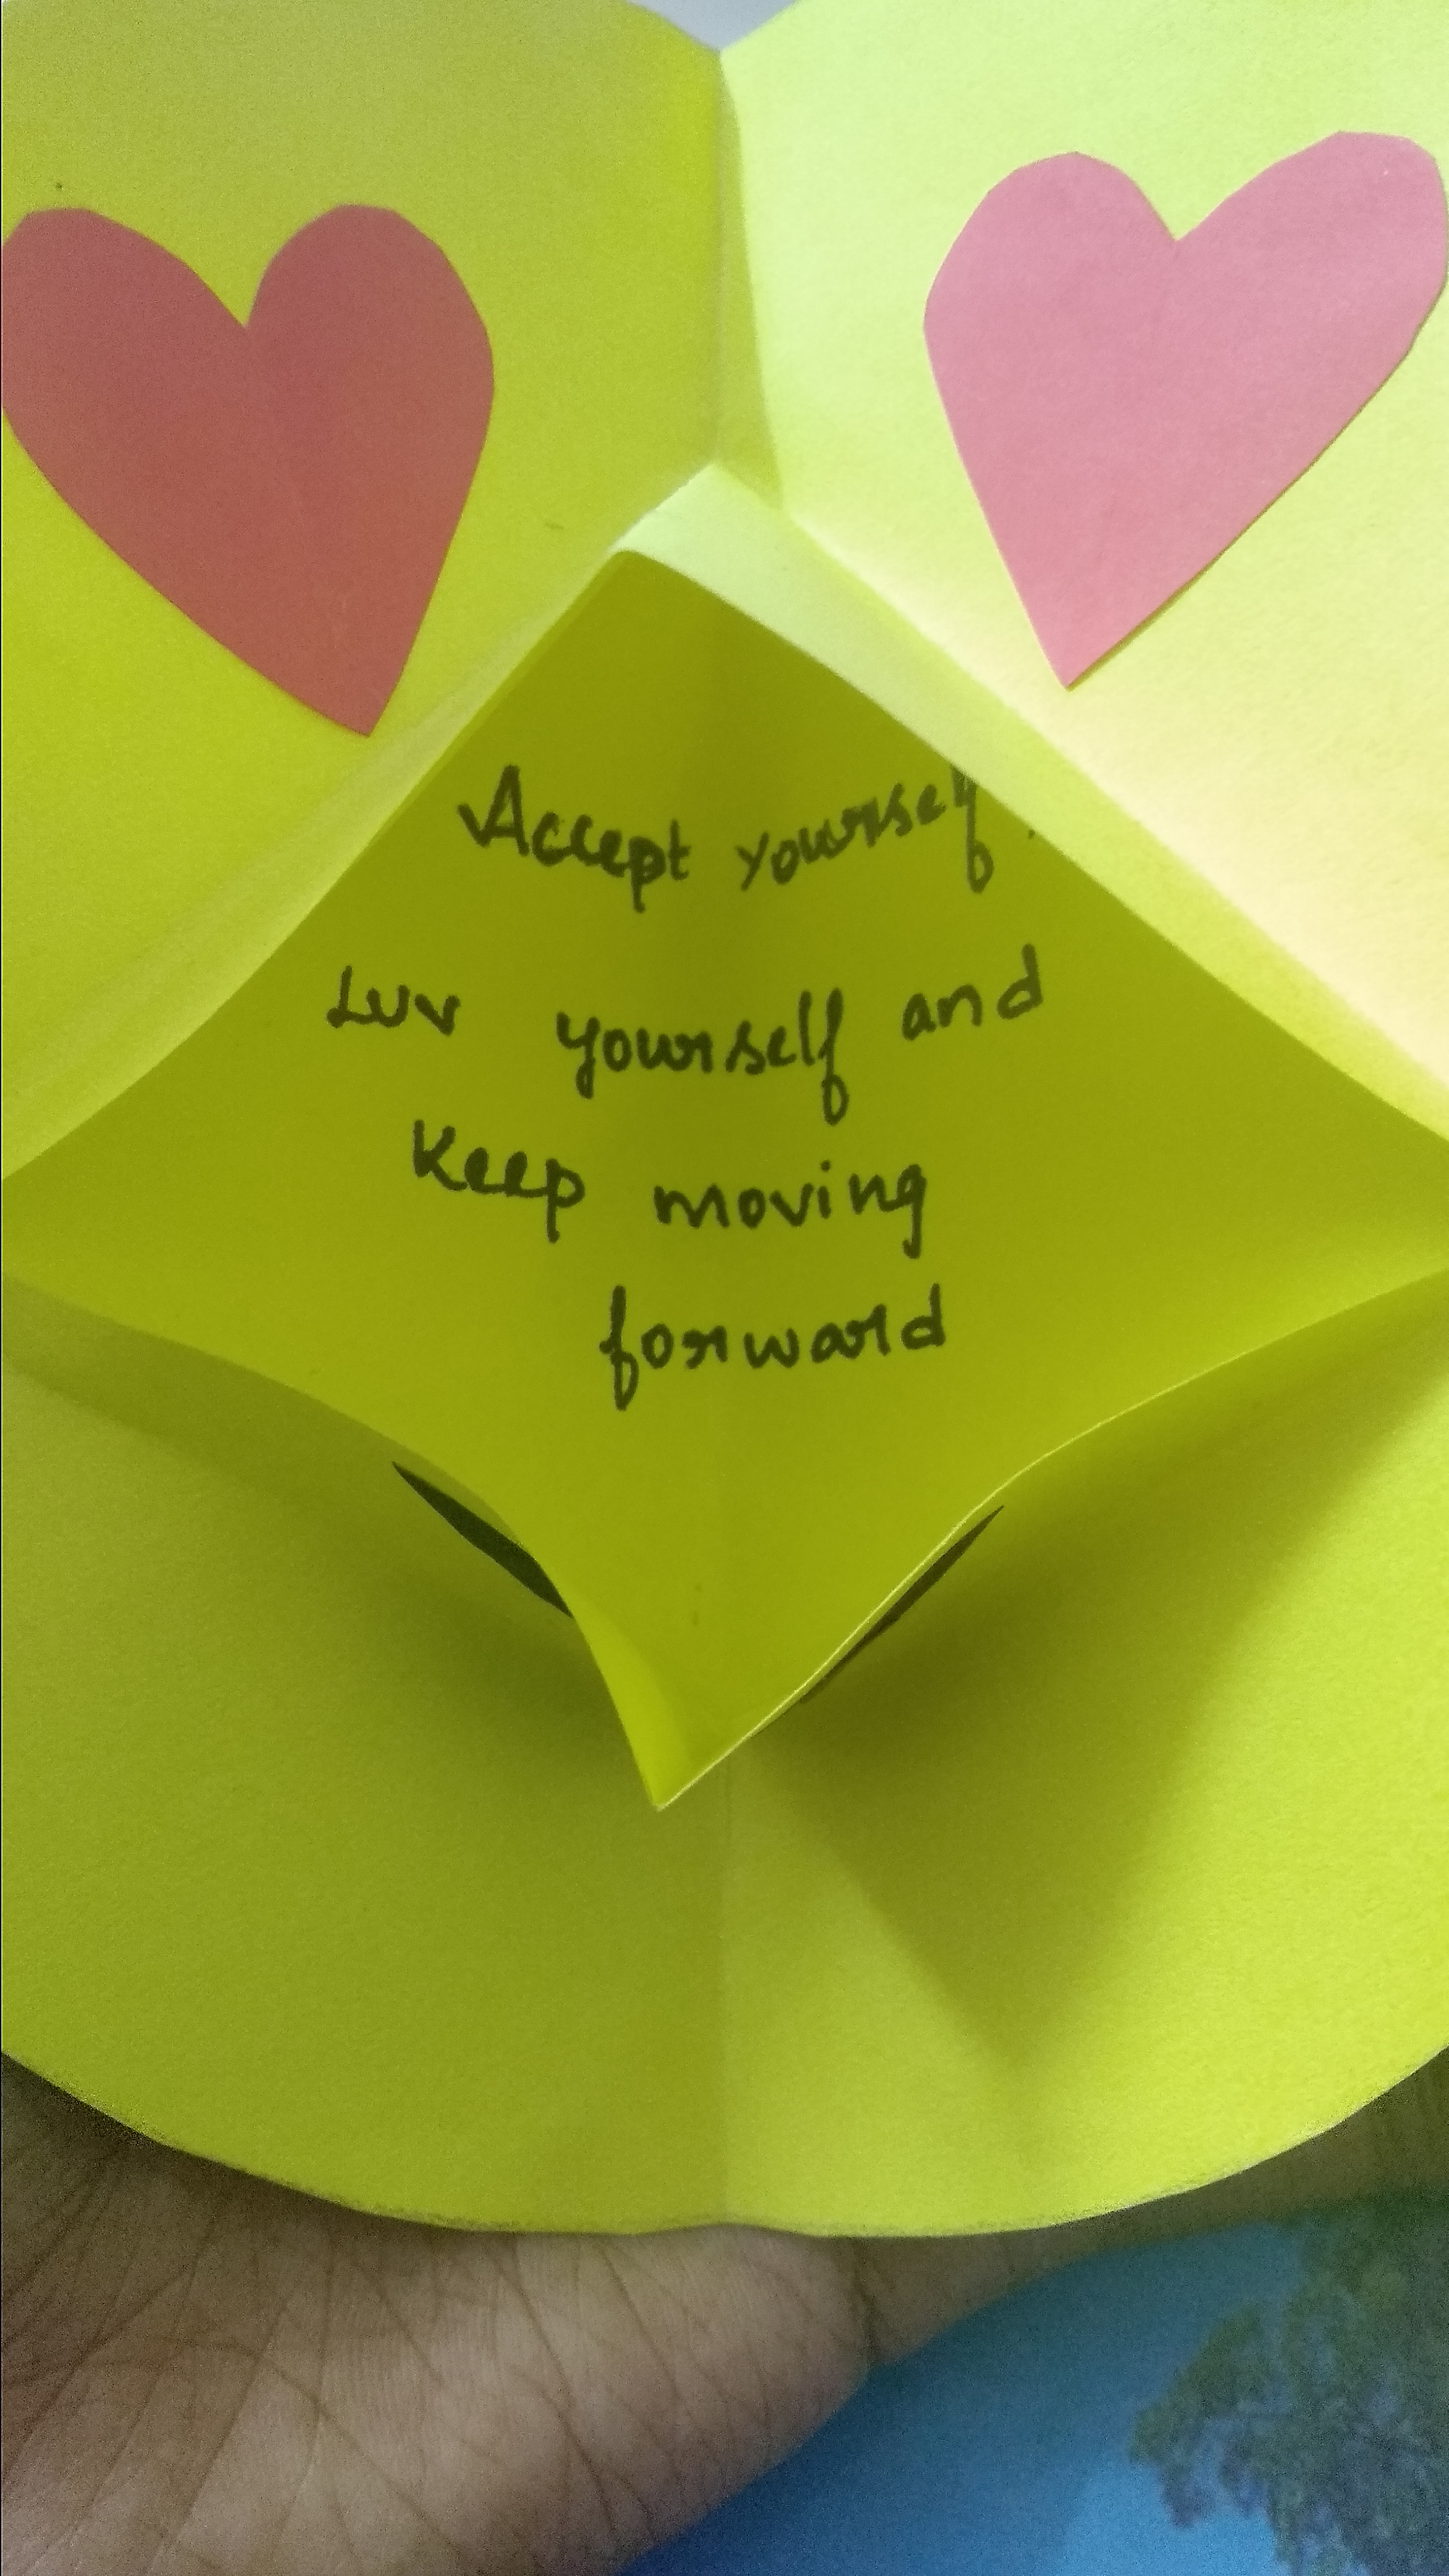 Accept yourself.
Luv yourself and
Keep moving
forward